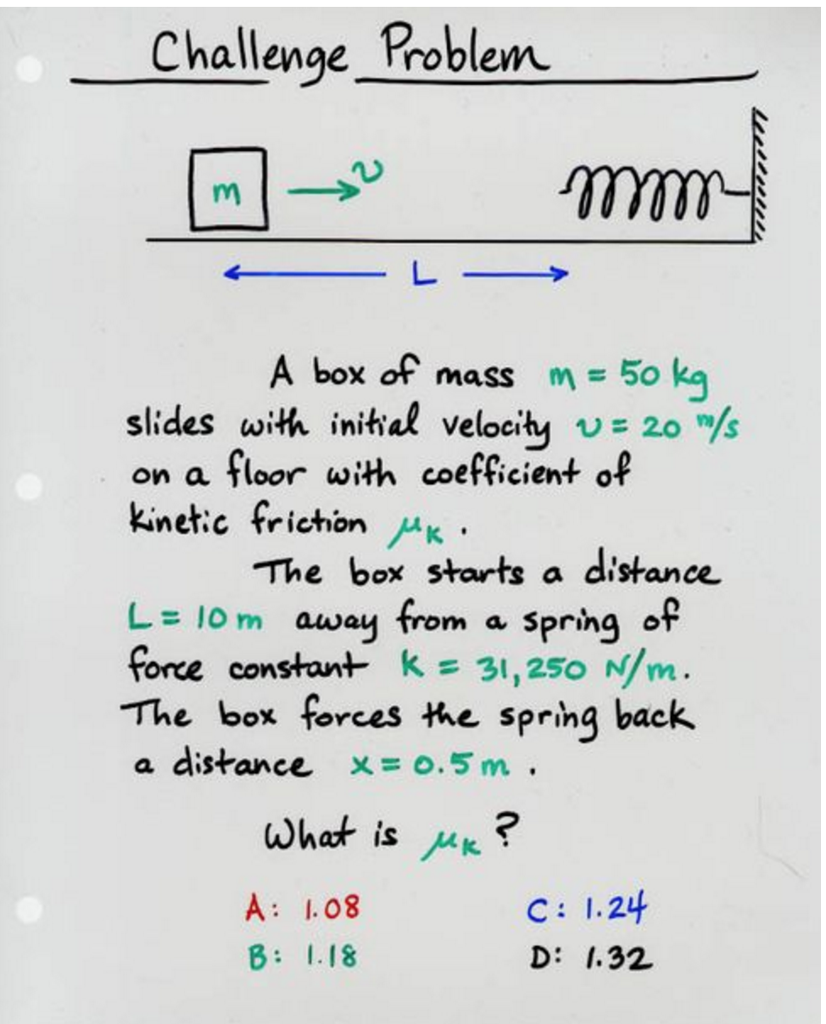 Challenge Problem
m
v
L
A box of mass m = 50 kg
slides with initial velocity v = 20 m/s
on a floor with coefficient of
kinetic friction μk .
The box starts a distance
L = 10 m away from a spring of
force constant k = 31,250 N/m.
The box forces the spring back
a distance x = 0.5 m .
What is μk ?
A: 1.08 C: 1.24
B: 1.18 D: 1.32